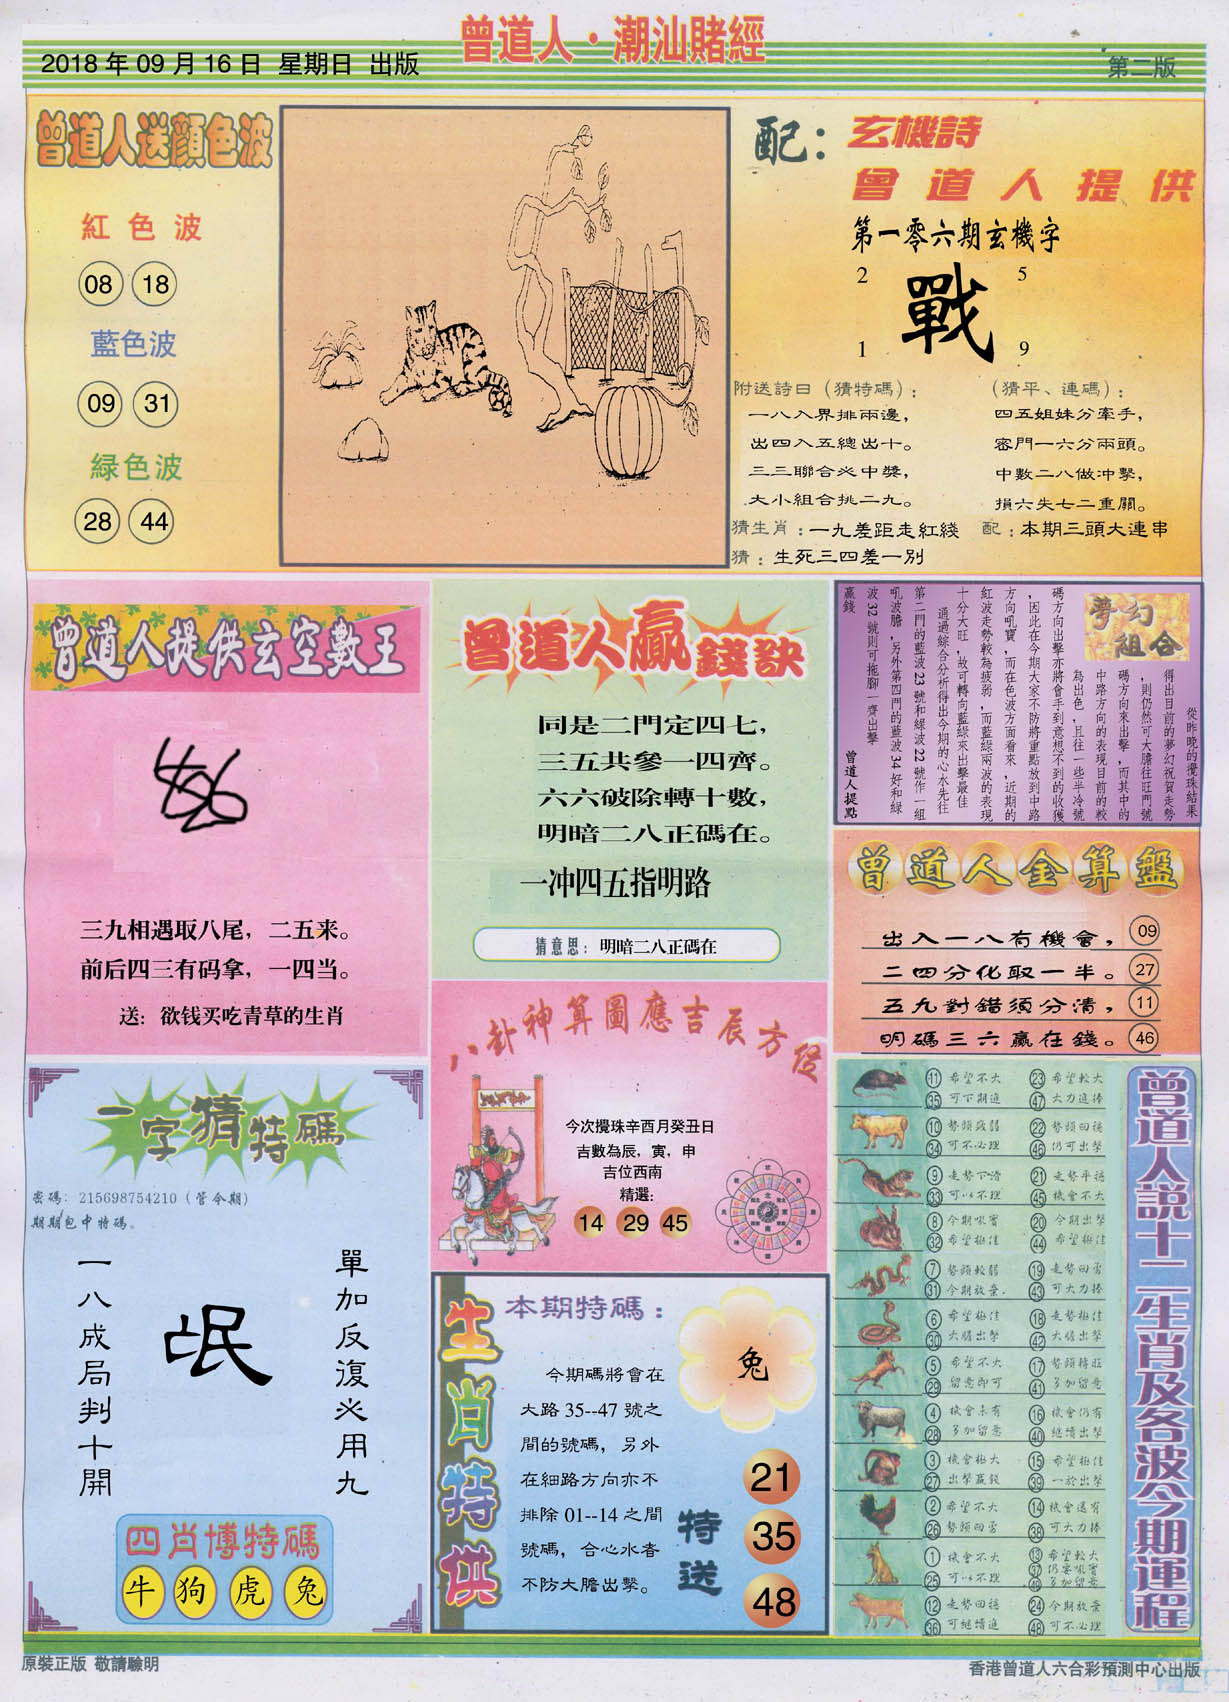 曾道人·潮汕賭經
2018 年 09 月 16 日 星期日 出版
第二版
曾道人送顏色波
紅色波
08 18
藍色波
09 31
緑色波
28 44
配：玄機詩
曾道人提供
第一零六期玄機字
2 5
戰
1 9
附送詩曰（猜特碼）：
一八入界排兩邊，
出四入五總出十。
三三聯合必中獎，
大小組合挑二九。
（猜平、連碼）：
四五姐妹分牽手，
密門一六分兩頭。
中數二八做冲擊，
損六失七二重關。
猜生肖：一九差距走紅綫
配：本期三頭大連串
猜：生死三四差一別
曾道人提供玄空數王
三九相遇取八尾，二五来。
前后四三有码拿，一四当。
送：欲钱买吃青草的生肖
曾道人贏錢訣
同是二門定四七，
三五共參一四齊。
六六破除轉十數，
明暗二八正碼在。
一冲四五指明路
猜意思：明暗二八正碼在
夢幻組合
從昨晚的攪珠結果
得出目前的夢幻祝賀走勢
，則仍然可大膽往旺門號
碼方向來出擊，而其中的
中路方向的表現目前的較
為出色，且往一些半冷號
碼方向出擊亦將會手到意想不到的收獲
，因此在今期大家不防將重點放到中路
方向吼寶，而在色波方面看來，近期的
紅波走勢較為疲弱，而藍緑兩波的表現
十分大旺，故可轉向藍緑來出擊最佳
通過綜合分析得出今期的心水先往
第二門的藍波 23 號和緑波 22 號作一組
吼波膽，另外第四門的藍波 34 好和緑
波 32 號則可拖腳一齊出擊
贏錢
曾道人提點
曾道人金算盤
出入一八有機會， 09
二四分化取一半。 27
五九對錯須分清， 11
明碼三六贏在錢。 46
八卦神算圖應吉辰方位
今次攪珠辛酉月癸丑日
吉數為辰，寅，申
吉位西南
精選：
14 29 45
一字猜特碼
密碼：215698754210（管令期）
期期包中特碼。
單加反復必用九
氓
一八成局判十開
四肖博特碼
牛 狗 虎 兔
生肖特供
本期特碼：
兔
今期碼將會在
大路 35--47 號之
間的號碼，另外
在細路方向亦不
排除 01--14 之間
號碼，合心水者
不防大膽出擊。
特送
21
35
48
曾道人說十二生肖及各波今期運程
11 希望不大 23 希望較大
35 可下期進 47 大力追捧
10 勢頭疲弱 22 勢頭回穩
34 可不必理 46 仍可出擊
9 走勢下滑 21 走勢平穩
33 可以不理 45 機會不大
8 今期吼實 20 今期出擊
32 希望極佳 44 希望極佳
7 勢頭較弱 19 走勢回勇
31 今期放棄 43 可大力捧
6 希望極佳 18 走勢極佳
30 大膽出擊 42 大膽出擊
5 希望不大 17 勢頭轉旺
29 留意即可 41 多加留意
4 機會未有 16 機會仍有
28 多加留意 40 繼續出擊
3 機會極大 15 希望極佳
27 出擊贏錢 39 一於出擊
2 希望不大 14 機會還有
26 勢頭回勇 38 可大力捧
1 機會不大 13 希望較大
25 可以不理 37 仍要吼實
49 多加留意
12 走勢回穩 24 今期放棄
36 可繼續進 48 可不必理
原裝正版 敬請驗明
香港曾道人六合彩預測中心出版